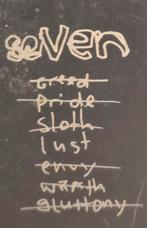 seven
greed
pride
sloth
lust
envy
wrath
gluttony